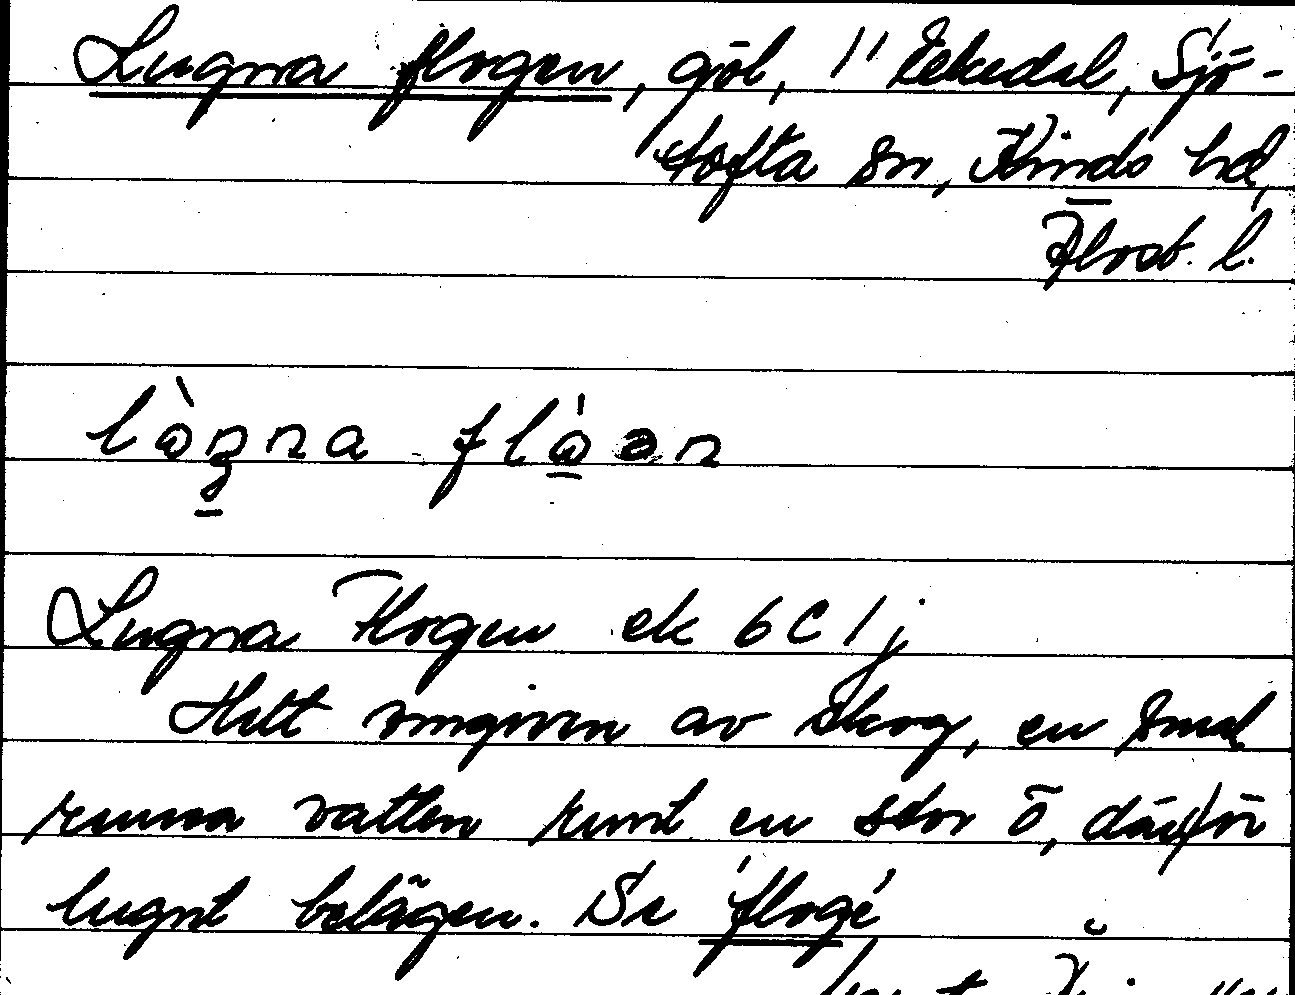 Lugna flogen, göl, 1" Eckedal, Sjö-
tofta sn, Kinds hd,
Älvsb. l.
lògna flòən
Lugna Flogen ek 6C 1 j
Helt omgiven av skog, en smal
ränna vatten runt en stor ö, därför
lugnt belägen. Se 'flogé'